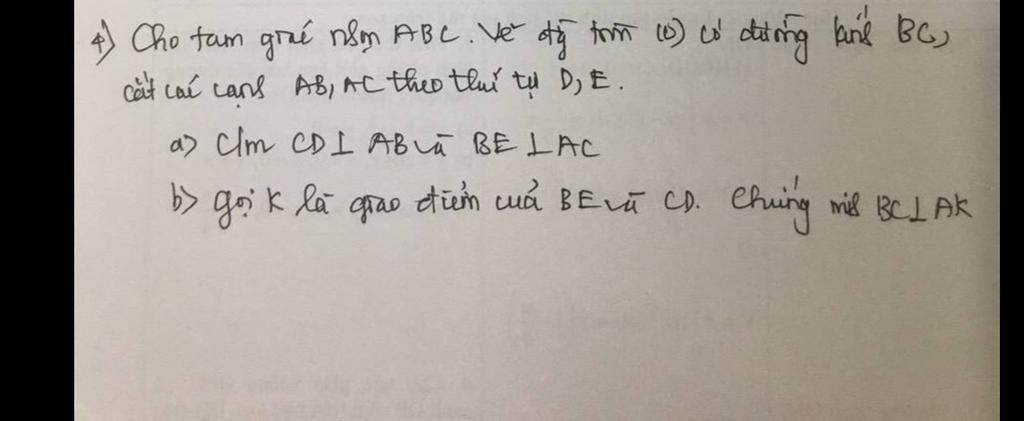 4) Cho tam giác nhọn ABC. Vẽ đg tròn (O) có đường kính BC,
cắt các cạnh AB, AC theo thứ tự D, E.
a) C/m CD⊥ AB và BE ⊥ AC
b) gọi K là giao điểm của BE và CD. Chứng mih BC⊥ AK